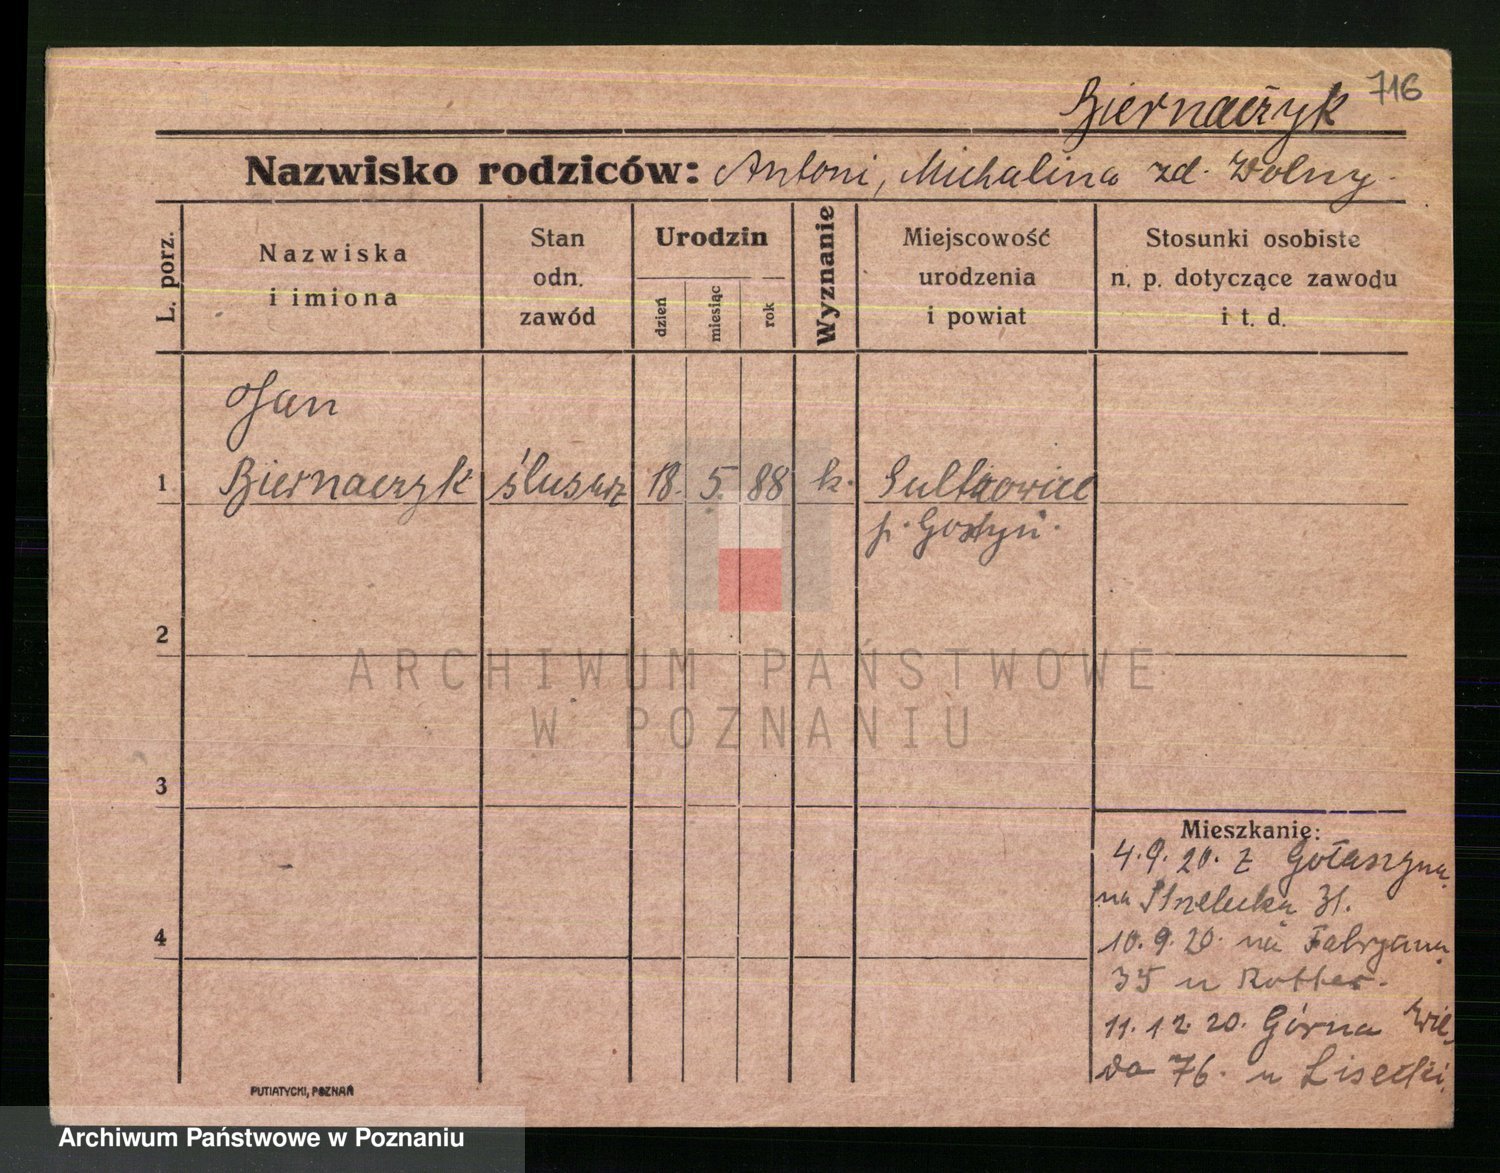 716
Biernaczyk
Nazwisko rodziców: Antoni, Michalina zd. Wolny.
L. porz.
Nazwiska
i imiona
Stan
odn.
zawód
Urodzin
dzień
miesiąc
rok
Wyznanie
Miejscowość
urodzenia
i powiat
Stosunki osobiste
n. p. dotyczące zawodu
i t. d.
Jan
1 Biernaczyk ślusarz 18. 5. 88 k. Sułkowice
p. Gostyń.
2
3
4
Mieszkanie:
4.9.20. z Gołaszyna
na Strzelecka 31.
10.9.20. na Fabryczna
35 u Rotter.
11.12.20. Górna Wil-
da 76. u
PUTIATYCKI, POZNAŃ
ARCHIWUM PAŃSTWOWE
W POZNANIU
Archiwum Państwowe w Poznaniu